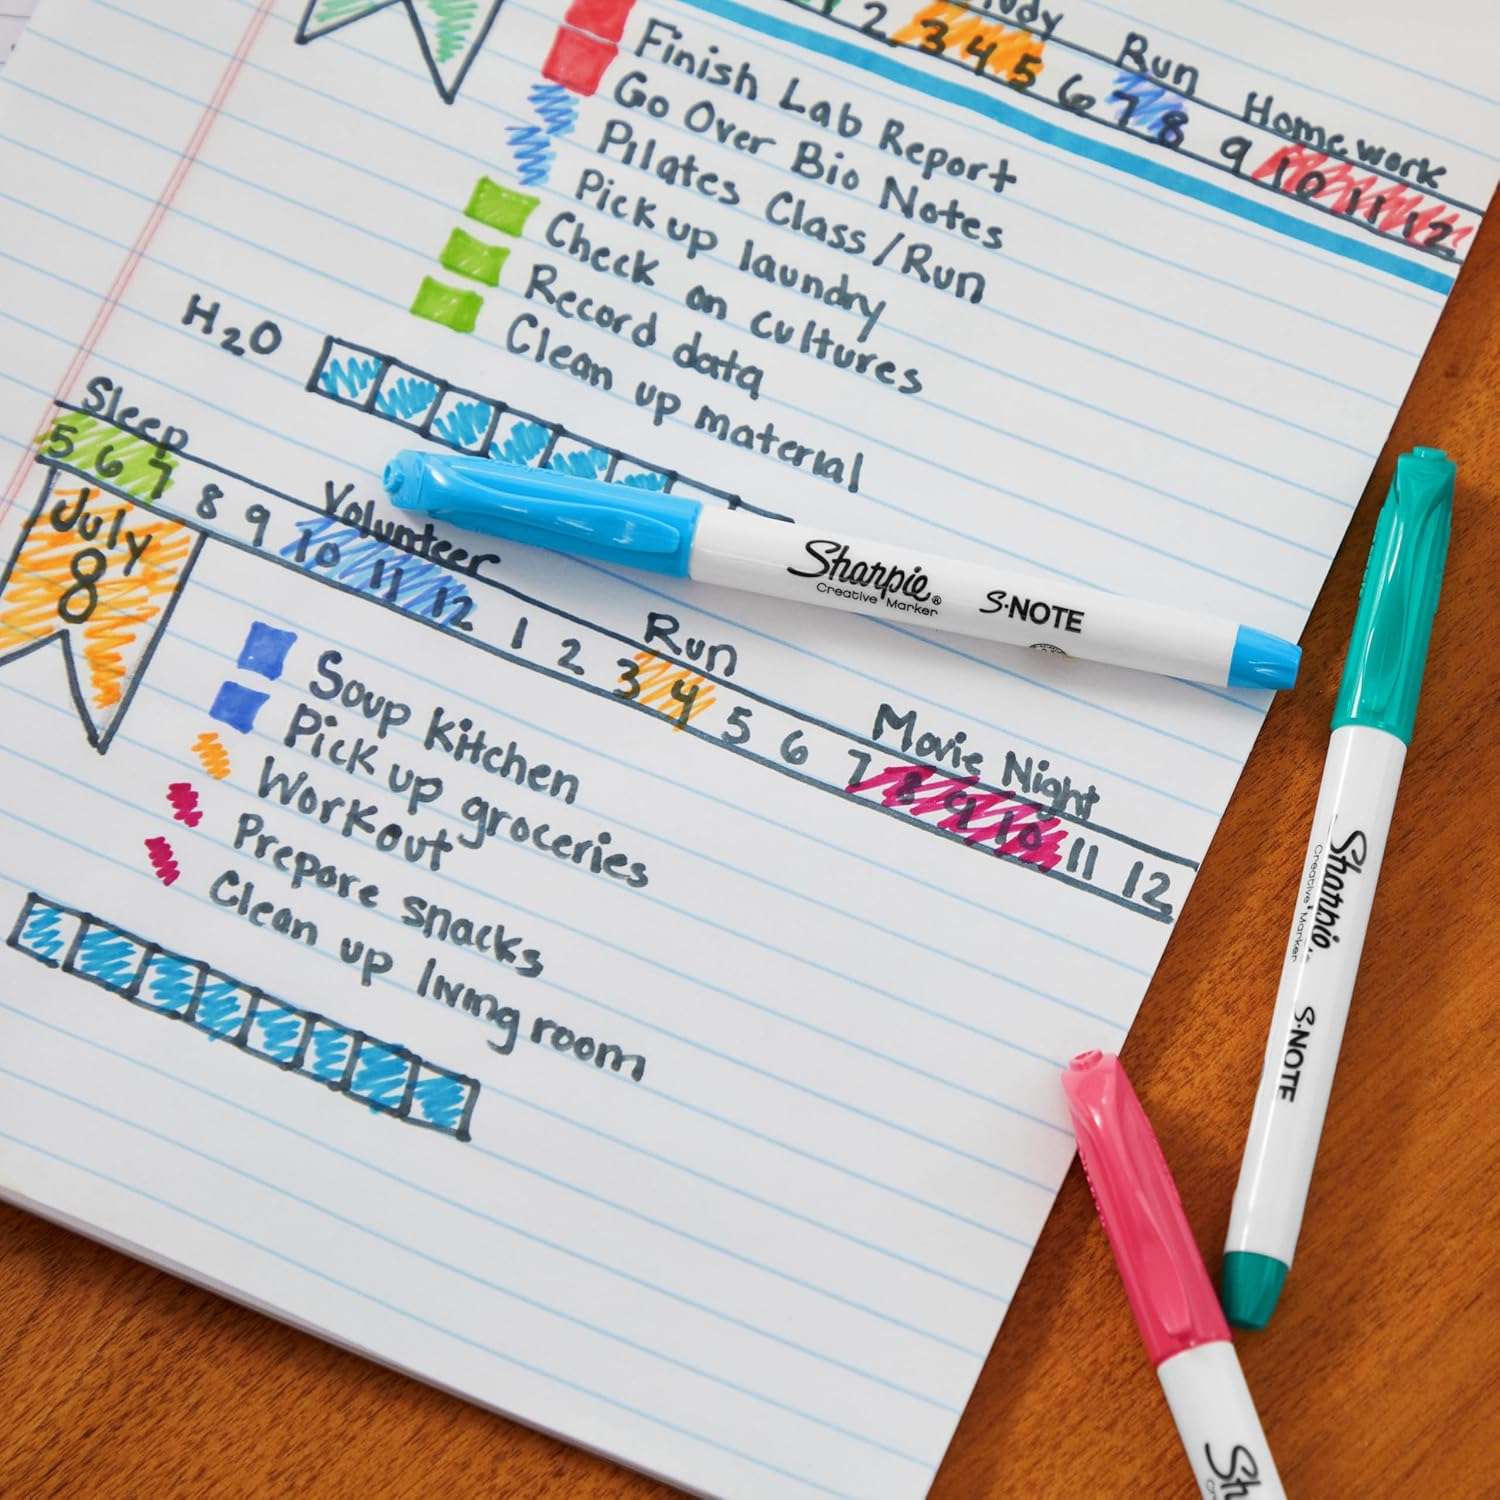 2 3 4 5 6 7 8 9 10 11 12
Run
Homework
Finish Lab Report
Go Over Bio Notes
Pilates Class/Run
Pick up laundry
Check on cultures
Record data
Clean up material
H₂O
Sleep
Volunteer
Run
Movie Night
5 6 7 8 9 10 11 12 1 2 3 4 5 6 7 8 9 10 11 12
July
8
Soup Kitchen
Pick up groceries
Workout
Prepare snacks
Clean up living room
Sharpie®
Creative Marker
S·NOTE
Sharpie
Creative Marker
S·NOTE
Sh